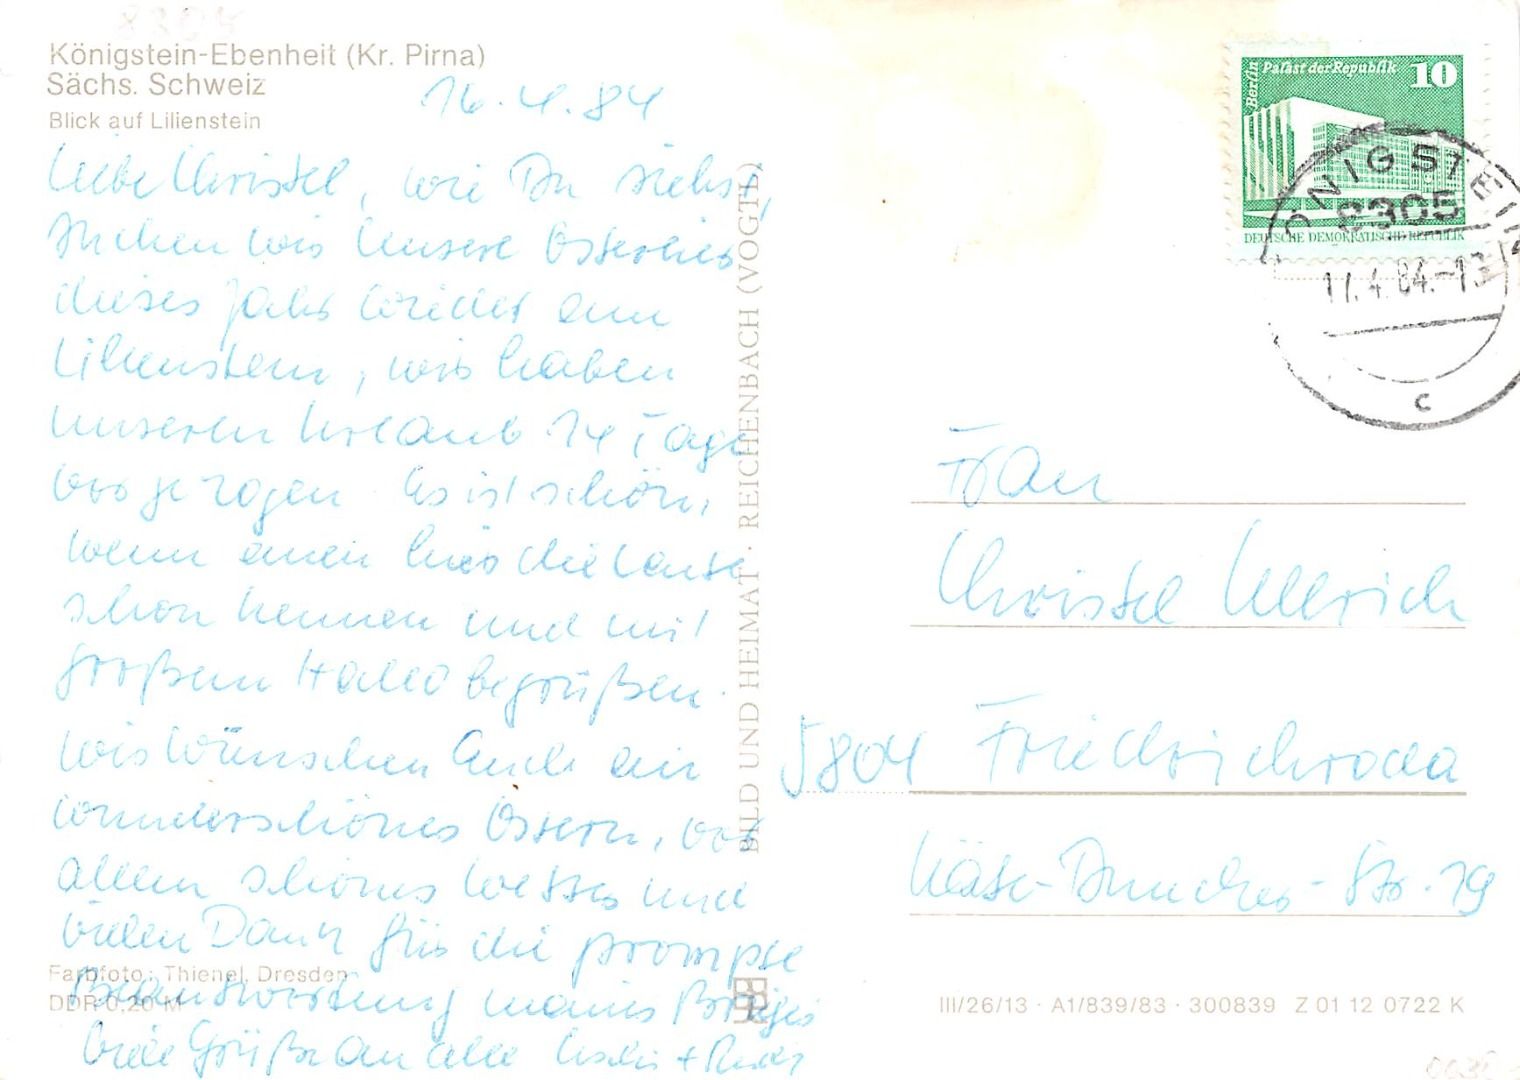 8305
Königstein-Ebenheit (Kr. Pirna)
Sächs. Schweiz
Blick auf Lilienstein
16.4.84
Liebe Christel, wie Du siehst,
suchen wir unsere Ostereier
dieses Jahr wieder am
Lilienstein, wir haben
unseren Urlaub 14 Tage
vorgezogen. Es ist schön,
wenn einen hier die Leute
schon kennen und mit
großem Hallo begrüßen.
Wir wünschen Euch ein
wunderschönes Ostern, vor
allem schönes Wetter und
vielen Dank für die prompte
Beantwortung meines Briefes
Viele Grüße an alle
Farbfoto: Thienel, Dresden
DDR 0,20 M
BILD UND HEIMAT · REICHENBACH (VOGTL)
Berlin
Palast der Republik
10
DEUTSCHE DEMOKRATISCHE REPUBLIK
KÖNIGSTEIN
8305
17.4.84.-13
c
Frau
Christel Ullrich
5804 Friedrichroda
Käte-Duncker-Str. 19
III/26/13 · A1/839/83 · 300839 Z 01 12 0722 K